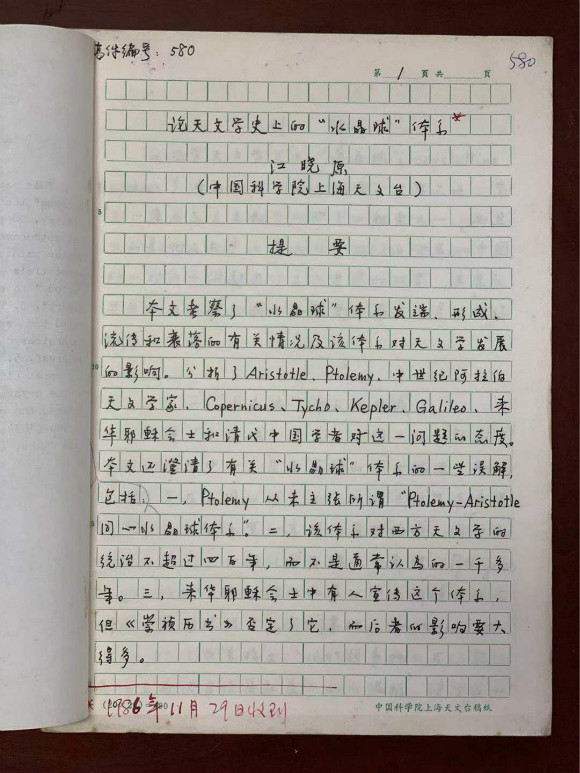 稿件编号：580
580
第 1 页共 页
论天文学史上的“水晶球”体系*
江晓原
（中国科学院上海天文台）
5
提 要
本文考察了“水晶球”体系发端、形成、
流传和衰落的有关情况及该体系对天文学发展
10
的影响。分析了Aristotle、Ptolemy、中世纪阿拉伯
天文学家、Copernicus、Tycho、Kepler、Galileo、来
华耶稣会士和清代中国学者对这一问题的态度。
本文还澄清了有关“水晶球”体系的一些误解，
包括：一，Ptolemy从未主张所谓“Ptolemy-Aristotle
同一水晶球体系”。二，该体系对西方天文学的
统治不超过四百年，而不是通常认为的一千多
年。三，来华耶稣会士中有人宣传这个体系，
但《崇祯历书》否定了它，而后者的影响要大
得多。
1986年11月29日收到
中国科学院上海天文台稿纸